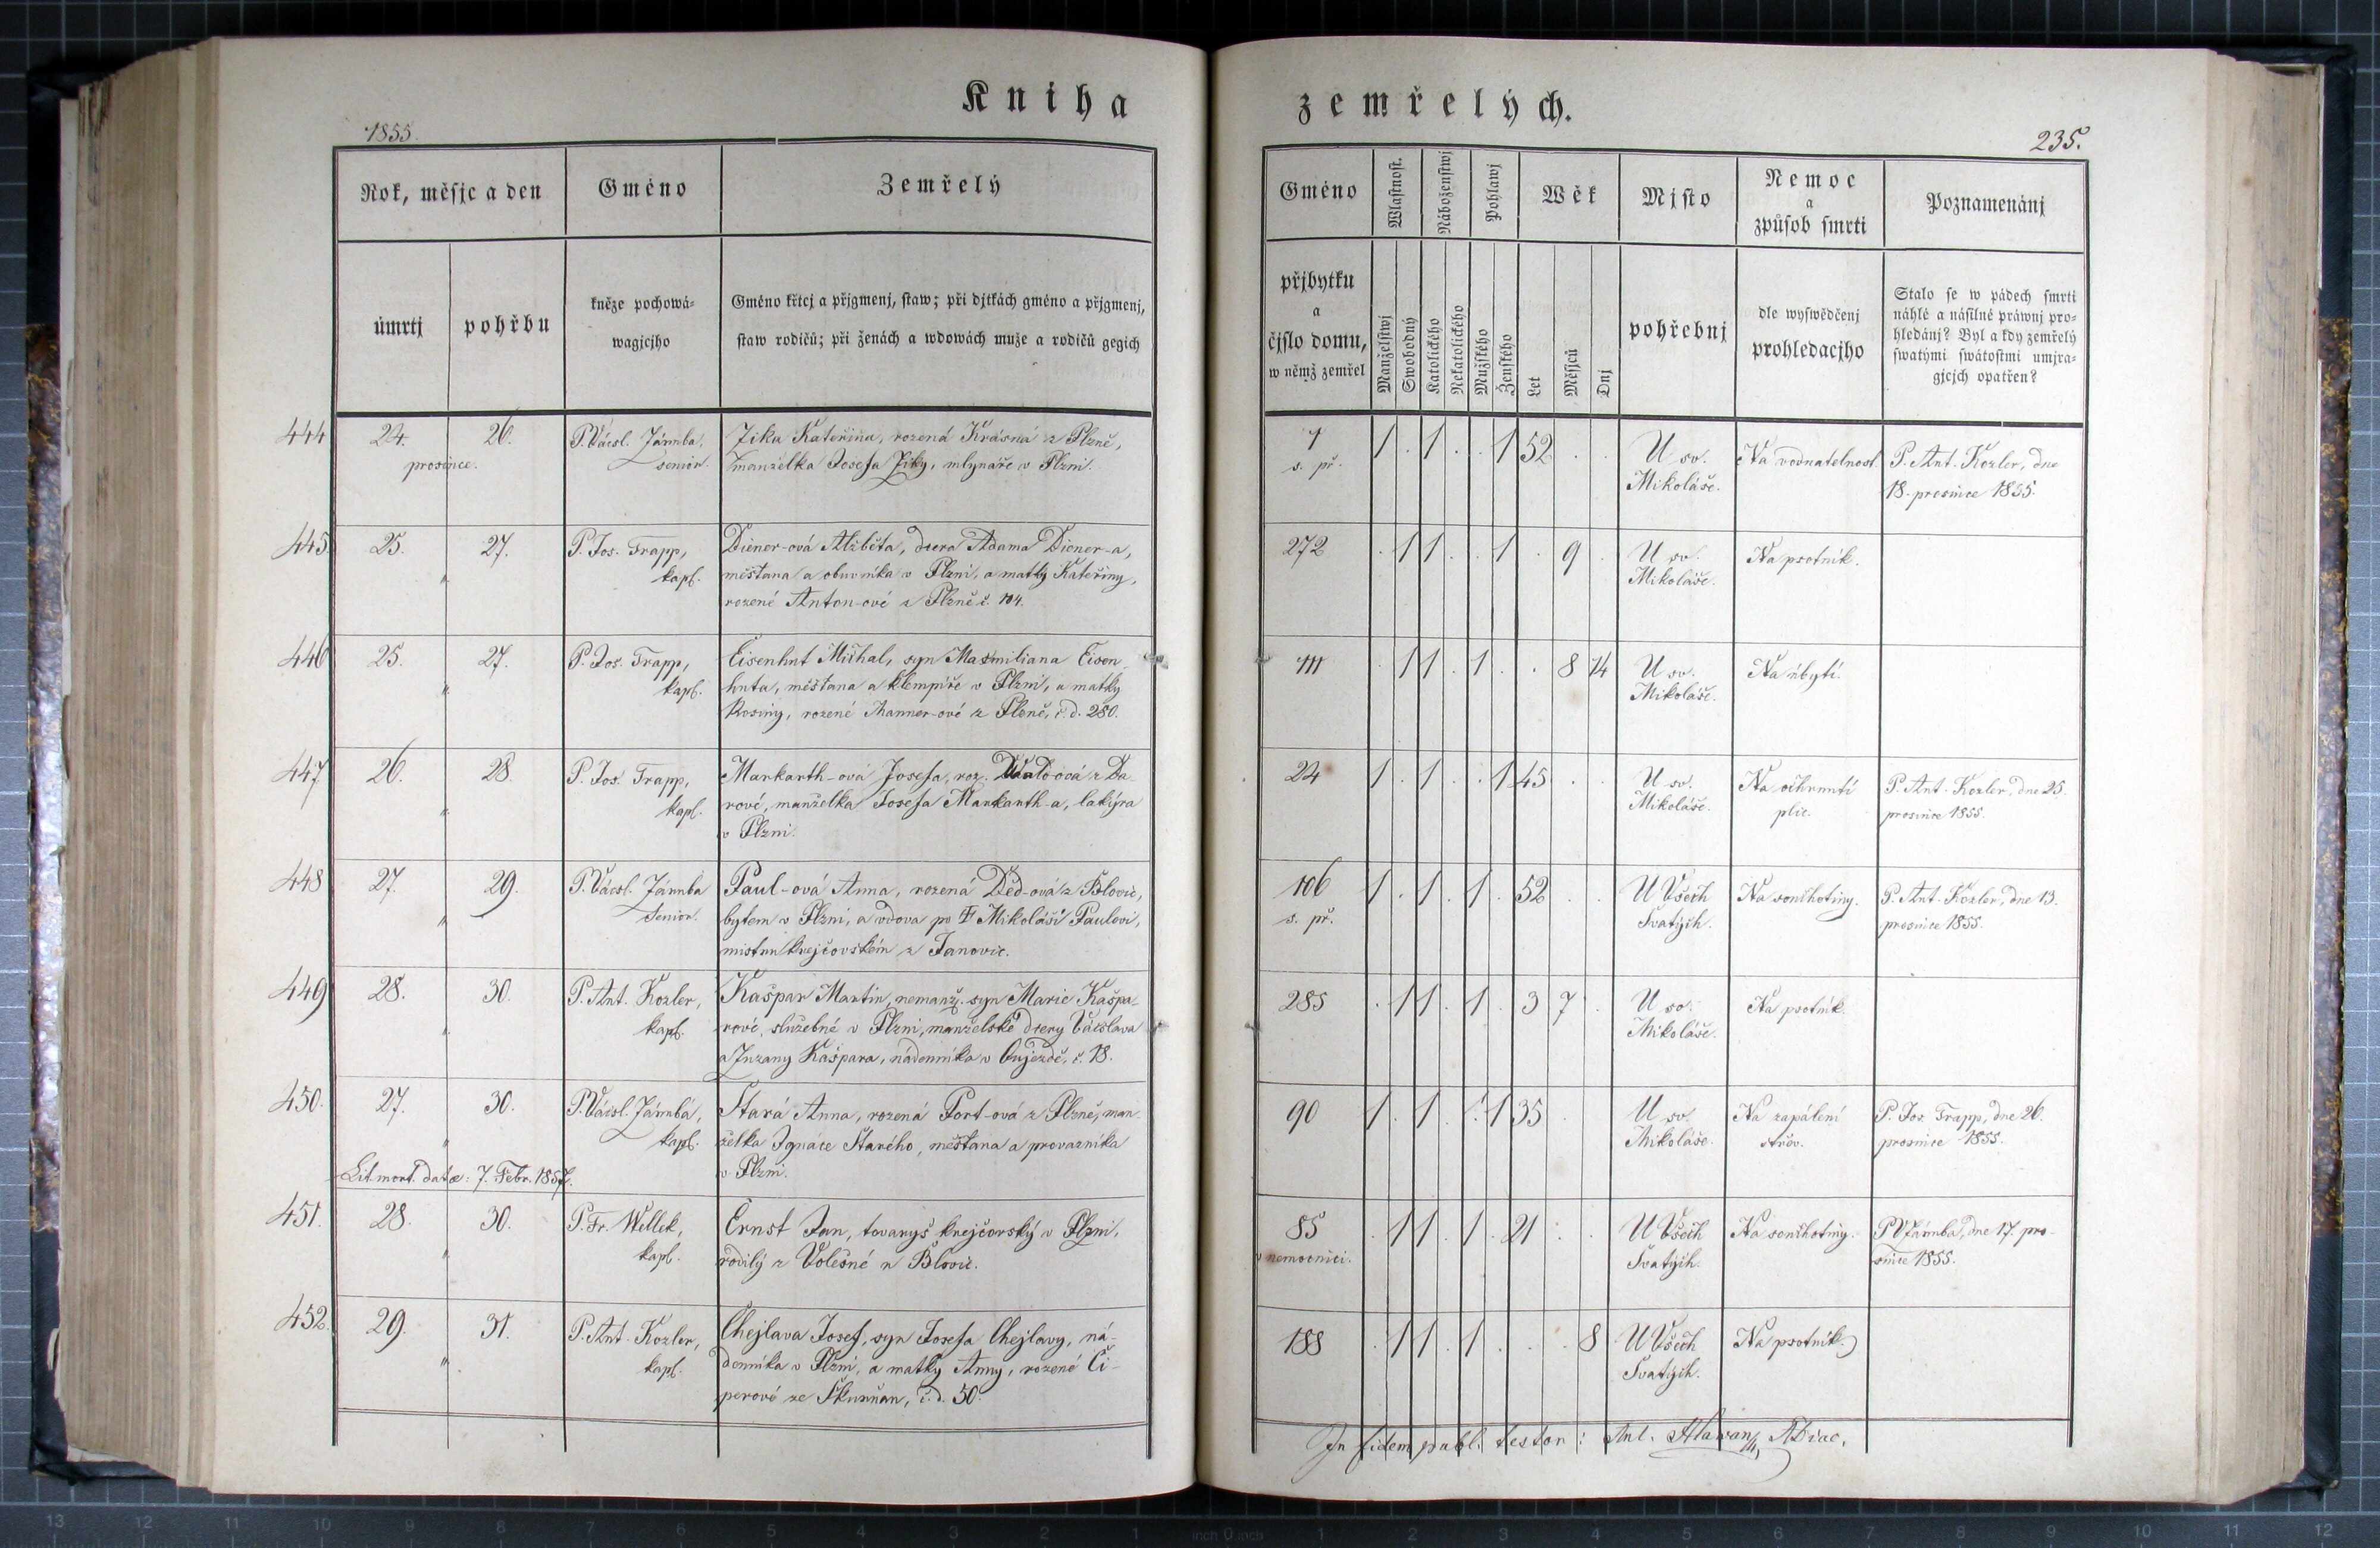 Kniha zemřelých.
1855.
235.
Rok, měsjc a den
Gméno
Zemřelý
úmrtj
pohřbu
kněze pochowá-
wagjcjho
Gméno křtcj a přjgmenj, staw; při djtkách gméno a přjgmenj,
staw rodičů; při ženách a wdowách muže a rodičů gegich
Gméno
Wlastnost.
Náboženstwj
Pohlawj
Wěk
Mjsto
Nemoc
a
způsob smrti
Poznamenánj
přjbytku
a
čjslo domu,
w němž zemřel
Manželstwj
Swobodný
Katolického
Nekatolického
Mužského
Ženského
Let
Měsjců
Dnj
pohřebnj
dle wyswědčenj
prohledacjho
Stalo se w pádech smrti
náhlé a násilné práwnj pro-
hledánj? Byl a kdy zemřelý
swatými swátostmi umjra-
gjcjch opatřen?
444 24. 26.
prosince.
P. Vácsl. Jármba,
senior.
Zika Kateřina, rozená Krásná z Plzně,
manželka Josefa Ziky, mlynáře v Plzni.
1
s. př.
1 . 1 . . 1 52 . .
U sv.
Mikoláše.
Na vodnatelnost.
P. Ant. Kozler, dne
18. prosince 1855.
445 25. 27.
"
P. Jos. Trapp,
kapl.
Diener-ová Alžběta, dcera Adama Diener-a,
měšťana a obuvníka v Plzni, a matky Kateřiny,
rozené Anton-ové z Plzně č. 104.
272
. 1 1 . . 1 . 9 .
U sv.
Mikoláše.
Na psotník.
446 25. 27.
"
P. Jos. Trapp,
kapl.
Eisenhut Michal, syn Maxmiliana Eisen-
huta, měšťana a klempíře v Plzni, a matky
Rosiny, rozené Manner-ové z Plzně, č. d. 280.
111
. 1 1 . 1 . . 8 14
U sv.
Mikoláše.
Na úbytí.
447 26. 28.
"
P. Jos. Trapp,
kapl.
Markarth-ová Josefa, roz. Wald-ová z Da-
rové, manželka Josefa Markarth-a, lakýra
v Plzni.
24
1 . 1 . . 1 45 . .
U sv.
Mikoláše.
Na ochrnutí
plic.
P. Ant. Kozler, dne 25.
prosince 1855.
448 27. 29.
"
P. Vácsl. Jármba
Senior.
Paul-ová Anna, rozená Děd-ová z Blovic,
bytem v Plzni, a vdova po † Mikoláši Paulovi,
mistru krejčovském z Janovic.
106
s. př.
1 . 1 . 1 . 52 . .
U Všech
Svatých.
Na souchotiny.
P. Ant. Kozler, dne 13.
prosince 1855.
449 28. 30.
"
P. Ant. Kozler,
kapl.
Kašpar Martin, nemanž. syn Marie Kašpa-
rové, služebné v Plzni, manželské dcery Vácslava
a Zuzany Kašpara, nádenníka v Oujezdě, č. 18.
285
. 1 1 . 1 . 3 7 .
U sv.
Mikoláše.
Na psotník.
450. 27. 30.
"
P. Vácsl. Jármba,
kapl.
Stará Anna, rozená Port-ová z Plzně, man-
želka Ignáce Starého, měšťana a provazníka
v Plzni.
Lit. mort. datæ: 7. Febr. 1857.
90
1 . 1 . . 1 35
U sv.
Mikoláše.
Na zapálení
střev.
P. Jos. Trapp, dne 26.
prosince 1855.
451. 28. 30.
"
P. Fr. Wellek,
kapl.
Ernst Jan, tovaryš krejčovský v Plzni,
rodilý z Volešné u Blovic.
85
v nemocnici.
. 1 1 . 1 . 21 . .
U Všech
Svatých.
Na souchotiny.
P. V. Jármba, dne 17. pro-
since 1855.
452. 29. 31.
"
P. Ant. Kozler,
kapl.
Chejlava Josef, syn Josefa Chejlavy, ná-
denníka v Plzni, a matky Anny, rozené Ci-
perové ze Skurňan, č. d. 50.
188
. 1 1 . 1 . . . 8
U Všech
Svatých.
Na psotník.
In fidem publ. testor: Ant. Hlawan